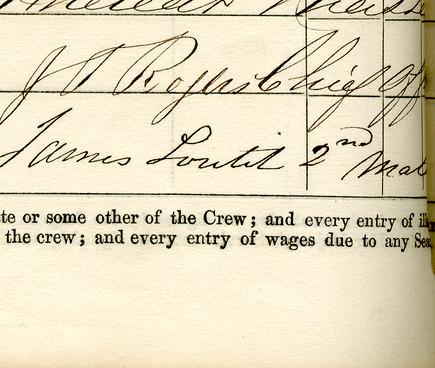 J T Rogers Chief Off
James Loutit 2nd Mat
te or some other of the Crew; and every entry of ill
the crew; and every entry of wages due to any Sea